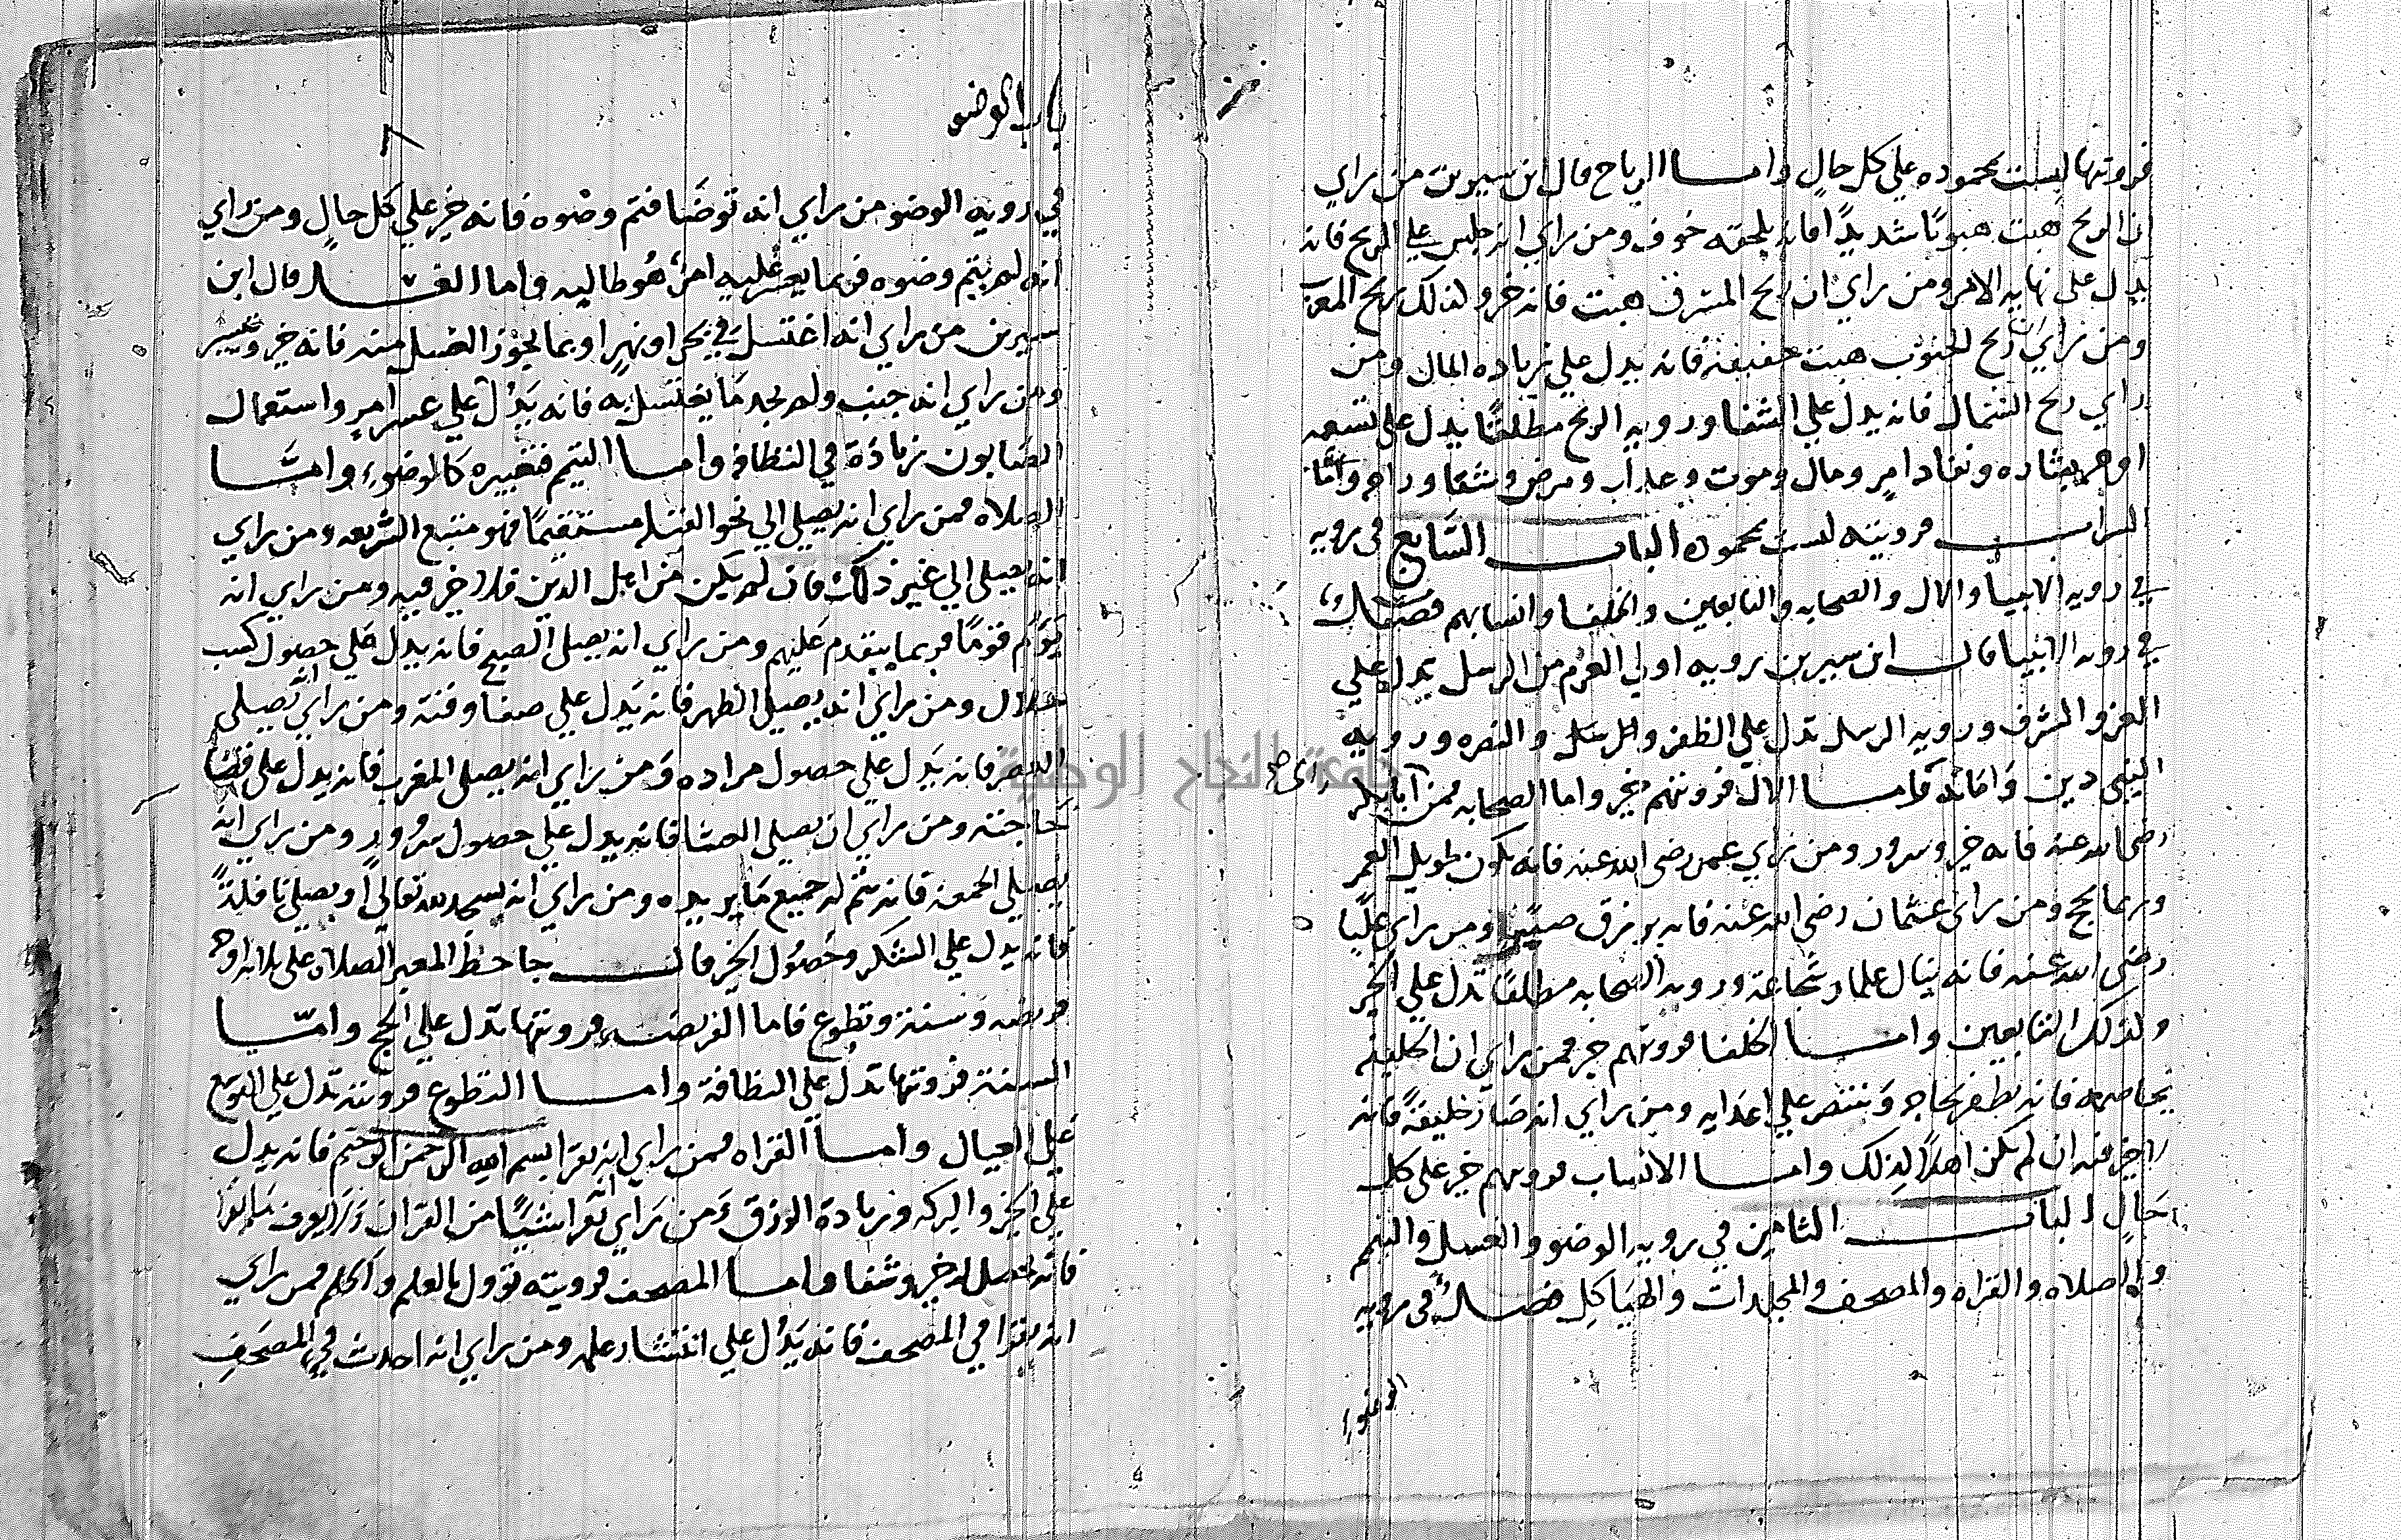 فرويتها ليست محموده علي كل حالٍ واما الرياح قال ابن سيرين من راي
ان الريح هبت هبوبًا شديدًا فانه يلحقه خوف ومن راي انه جلس علي الريح فانه
يدل على نهايه الامر ومن راي ان ريح المشرق هبت فانه خير وكذلك ريح المغرب
ومن راي ان ريح الجنوب هبت خفيفة فانه يدل علي زياده المال ومن
راي ريح الشمال فانه يدل علي الشفا ورويه الريح مطلقًا يدل على تسعه
اوجه بشاره ونفاد امرٍ ومال وموت وعذاب ومرض وشفا وراحه واما
السراب فرويته ليست محموده الباب السَابع في رويه
في رويه الانبيا والال والصحابه والتابعين والخلفا وانسابهم فصل
في رويه الانبيا قال ابن سيرين رويه اولي العزم من الرسل يدل علي
العز والشرف ورويه الرسل تدل علي الظفر والنصره ورويه
النبي دين وامانة واما الال فرويتهم خير واما الصحابه فمن راي ابا بكر
رضي الله عنه فانه خير وسرور ومن راي عمر رضي الله عنه فانه يكون طويل العمر
وربما يحج ومن راى عثمان رضي الله عنه فانه يرزق صيتًا ومن راى عليًا
رضي الله عنه فانه ينال علما وشجاعة ورويه الصحابه مطلقًا تدل علي الخير
وكذلك التابعين واما الخلفا فرويتهم خير فمن راي ان الخليفة
يخاصمه فانه يظفر بحاجه وينتصر علي اعدايه ومن راي انه صار خليفةً فانه
لا خير فيه ان لم يكن اهلًا لذلك واما الانساب فرويتهم خير على كل
حَالٍ الباب الثامِن في رويه الوضو والغسل والتيمم
والصلاه والقراه والمصحف والمجلدات والهيَاكِل فصل في رويه
الوضو
باب الوضو
في رويه الوضو من راي انه توضَا فتم وضوه فانه خير علي كل حالٍ ومن راي
انه لم يتم وضوه فربما يعسر عليه امرٌ هُو طالبه واما الغسل قال ابن
سيرين من راي انه اغتسل في بحر او نهرٍ او بما يجوز الغسل منه فانه خير
ومن راي انه جنب ولم يجد مَا يغتسل به فانه يَدُل علي عسر امرٍ واستعمال
الصَابون زيادَة في النظافه واما التيمم فتعبيره كالوضوء وامَّا
الصلاه فمن راي انه يصلي الي نحو القبله مستقيمًا فهو متبع الشريعه ومن راي
انه يصلي الي غير ذلك فان لم يكن من اهل الدين فلا خير فيه ومن راي انه
يَؤم قومًا فربما يتقدم عليهم ومن راي انه يصلي الصبح فانه يدل علي حصول كسب
حلال ومن راي انه يصلي الظهر فانه يَدل علي صفا وقته ومن راي انه يصلى
العصر فانه يَدل علي حصول مراده ومن راي انه يصلى المغرب فانه يدل على قضا
حَاجته ومن راي انه يصلى العشا فانه يدل علي حصول سرُورٍ ومن راي انه
يصلي الجمعه فانه يتم له جميع مَا يريده ومن راي انه يسجد لله تعالى او يصلي نافلةً
فانه يدل علي الشكر وحصُول الخير قال جاحظ المعبر الصلاه على ثلاثه اوجه
فريضه وسنة وتطوع فاما الفريضه فرويتها تدل علي الحج وامّا
السنة فرويتها تدُل على النظافة واما التطوع فرويته تدل علي التوسع
علي العيال واما القراه فمن راي انه يقرا بسم الله الرحمن الرحيم فانه يدل
علي الخير والبركه وزيادة الرزق ومن رَاي انه يقرا شيئًا من القران ولم يعرف مَا يقرا
فانه يحصل له خير وشفا واما المصحف فرويته تؤول بالعلم والحلم فمن راي
انه يقرا في المصحف فانه يَدُل علي انتشار علمه ومن راي انه احدث في المصحَف
جامعة النجاح الوطنية